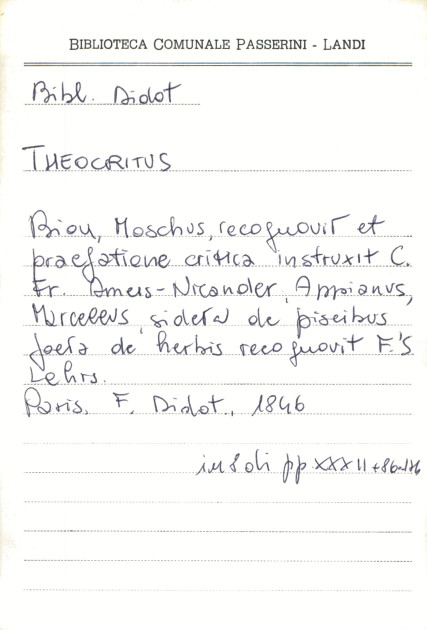 BIBLIOTECA COMUNALE PASSERINI - LANDI
Bibl. Didot
THEOCRITUS
Bion, Moschus, recognovit et
praefatione critica instruxit C.
Fr. Ameis - Nicander, Appianus,
Marcellus, sidera de piscibus
poeta de herbis recognovit F.S
Lehrs.
Paris, F. Didot, 1846
in 8 di pp XXXII +